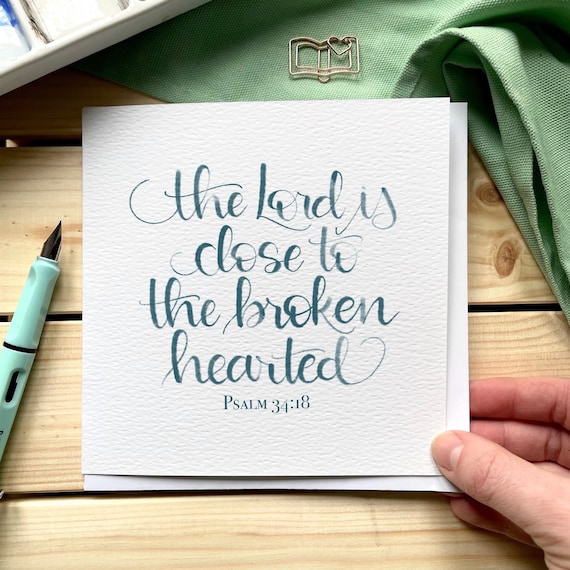 the Lord is
close to
the broken
hearted
PSALM 34:18